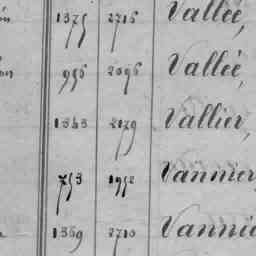 1375 2716 Vallée,
956 2096 Vallée,
1343 2179 Vallier,
753 1952 Vannier,
1369 2710